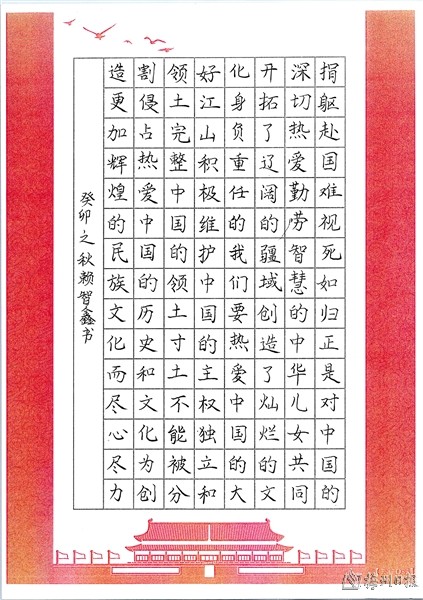 捐躯赴国难视死如归正是对中国的
深切热爱勤劳智慧的中华儿女共同
开拓了辽阔的疆域创造了灿烂的文
化身负重任的我们要热爱中国的大
好江山积极维护中国的主权独立和
领土完整中国的领土寸土不能被分
割侵占热爱中国的历史和文化为创
造更加辉煌的民族文化而尽心尽力
癸卯之秋赖智鑫书